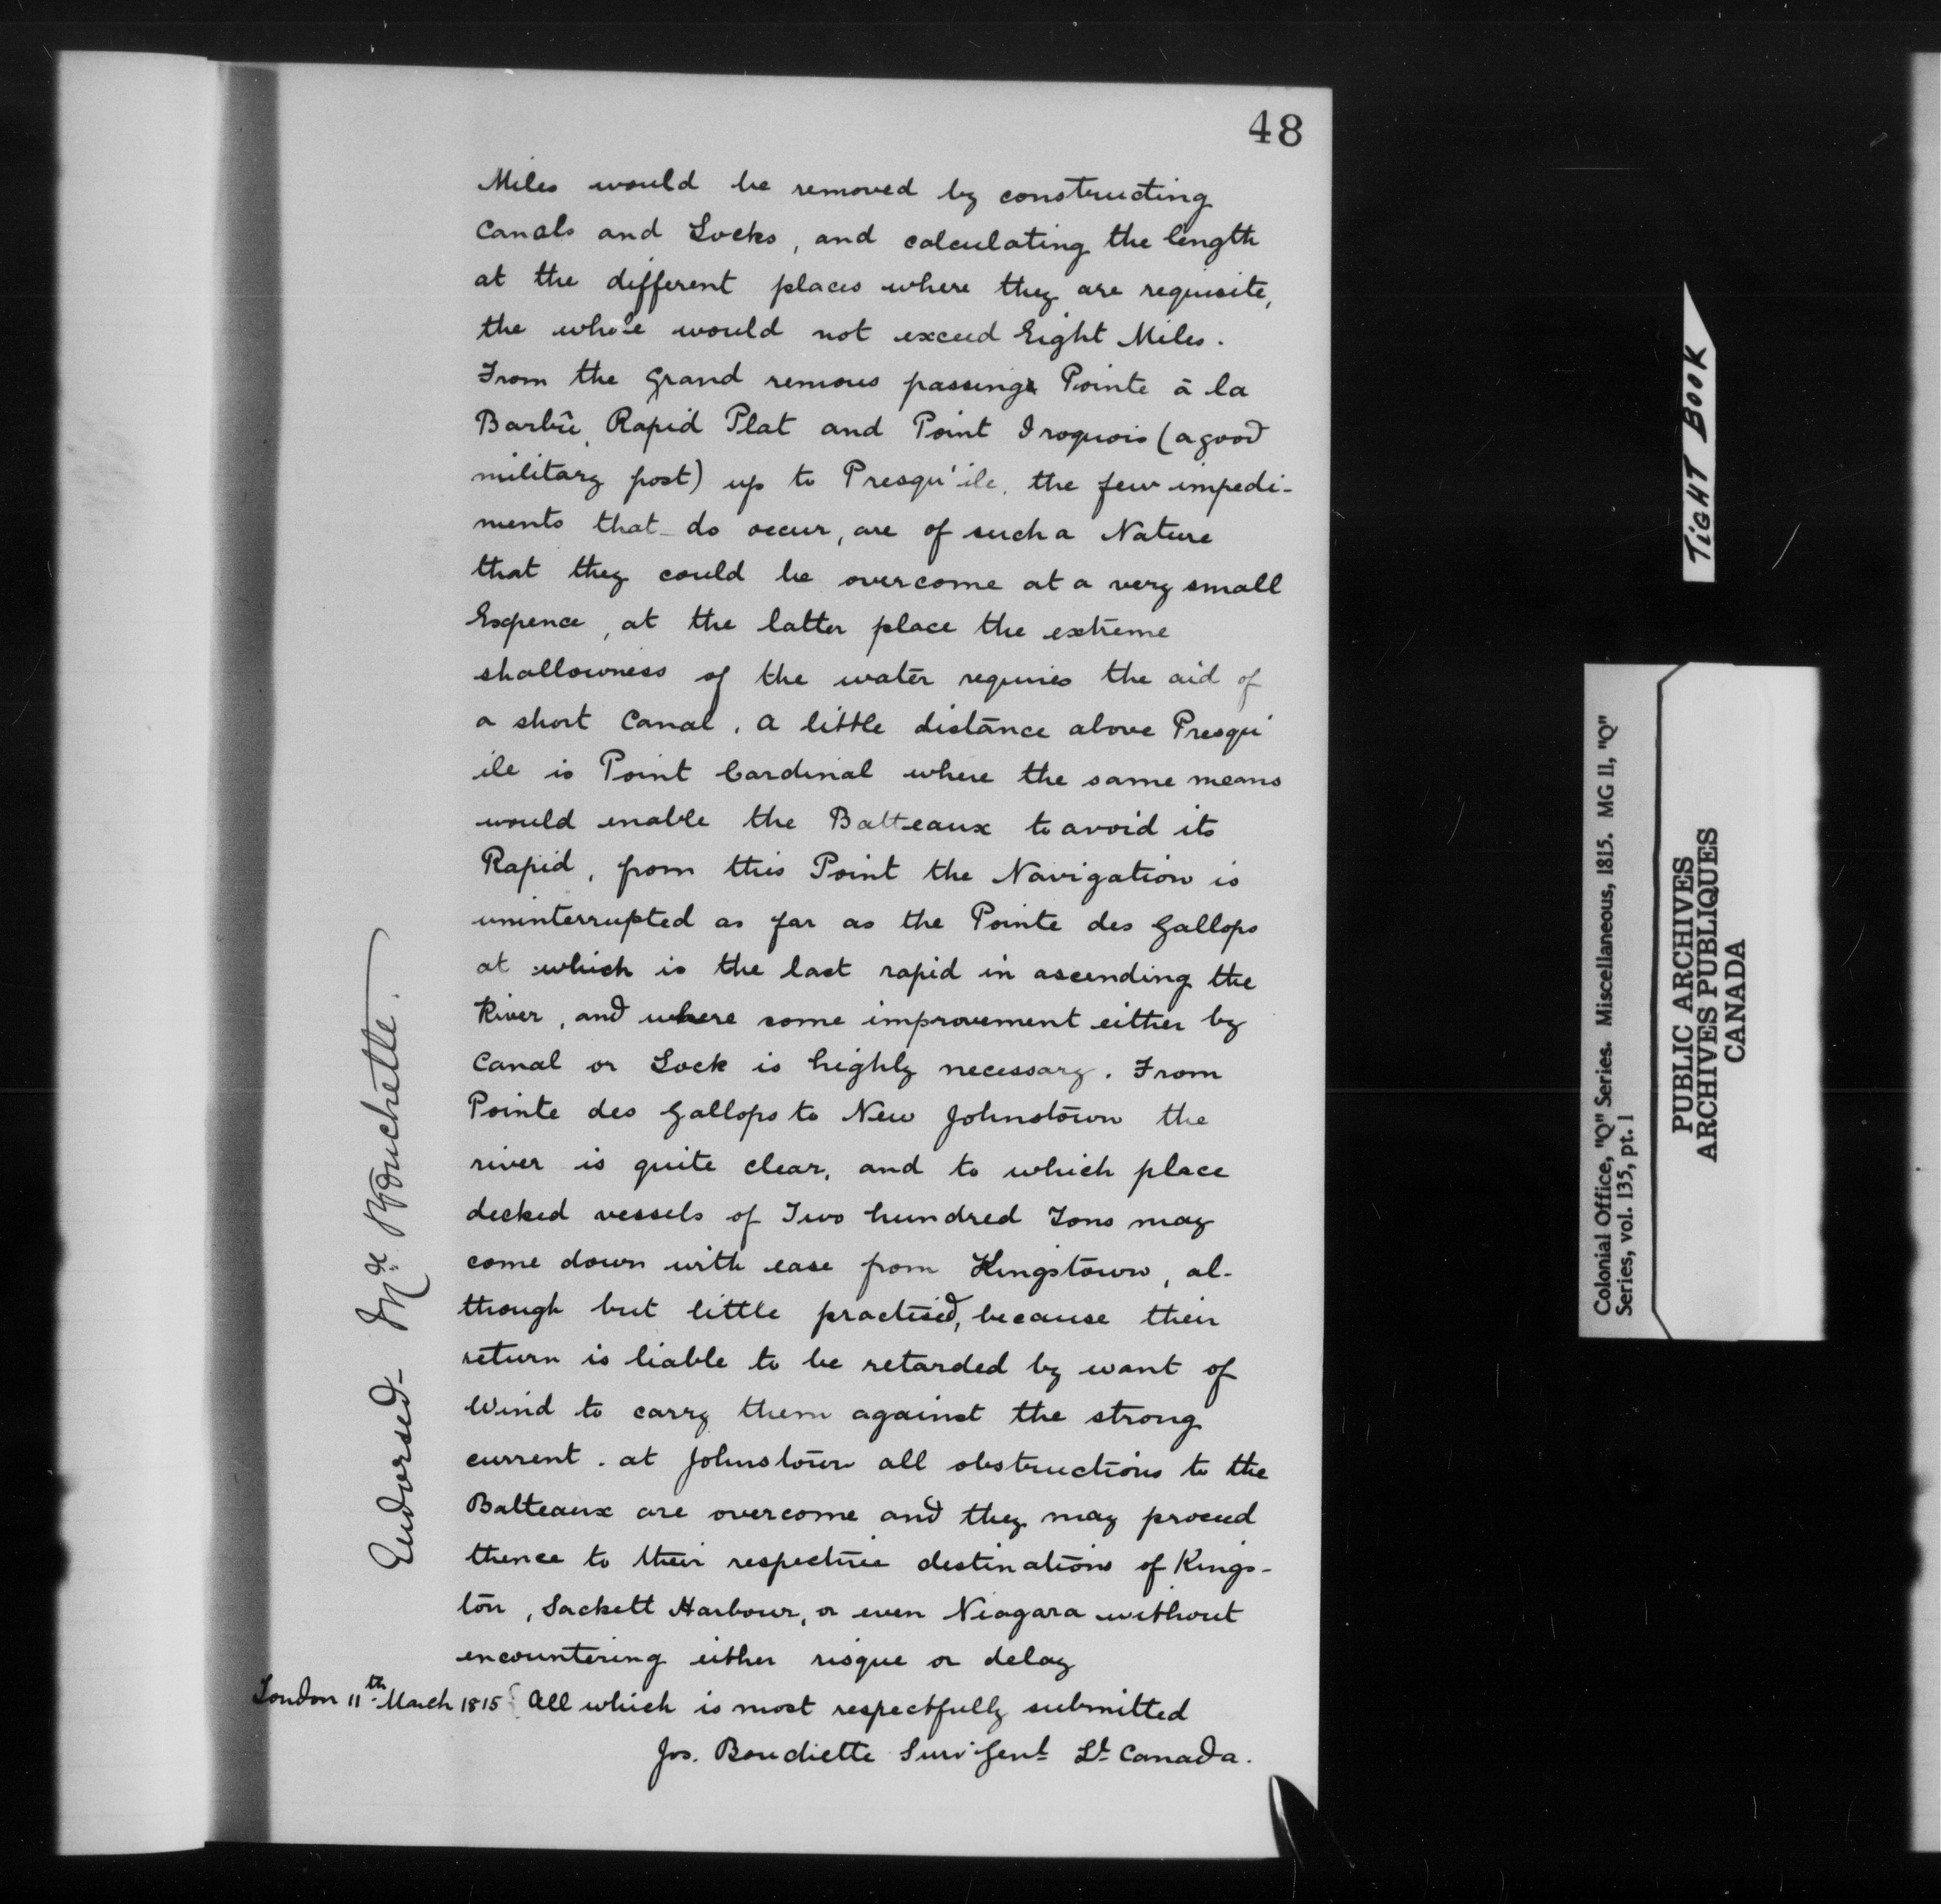 48
Miles would be removed by constructing
Canals and Locks, and calculating the length
at the different places where they are requisite,
the whole would not exceed Eight Miles.
From the Grand remous passing Pointe à la
Barbûe, Rapid Plat and Point Iroquois (a good
military post) up to Presqu'ile, the few impedi-
ments that do occur, are of such a Nature
that they could be overcome at a very small
Expence, at the latter place the extreme
shallowness of the water requires the aid of
a short Canal. A little distance above Presqu'
ile is Point Cardinal where the same means
would enable the Batteaux to avoid its
Rapid, from this Point the Navigation is
uninterrupted as far as the Pointe des Gallops
at which is the last rapid in ascending the
River, and where some improvement either by
Canal or Lock is highly necessary. From
Pointe des Gallops to New Johnstown the
river is quite clear, and to which place
decked vessels of Two hundred Tons may
come down with ease from Kingstown, al-
though but little practised, because their
return is liable to be retarded by want of
Wind to carry them against the strong
current. at Johnstown all obstructions to the
Batteaux are overcome and they may proceed
thence to their respective destinations of Kings-
ton, Sackett Harbour, or even Niagara without
encountering either risque or delay
London 11th March 1815 All which is most respectfully submitted
Jos. Bouchette Surv Genl Lr Canada.
Endorsed - Mr. Bouchette.
TIGHT BOOK
Colonial Office, "Q" Series. Miscellaneous, 1815. MG 11, "Q"
Series, vol. 135, pt. 1
PUBLIC ARCHIVES
ARCHIVES PUBLIQUES
CANADA